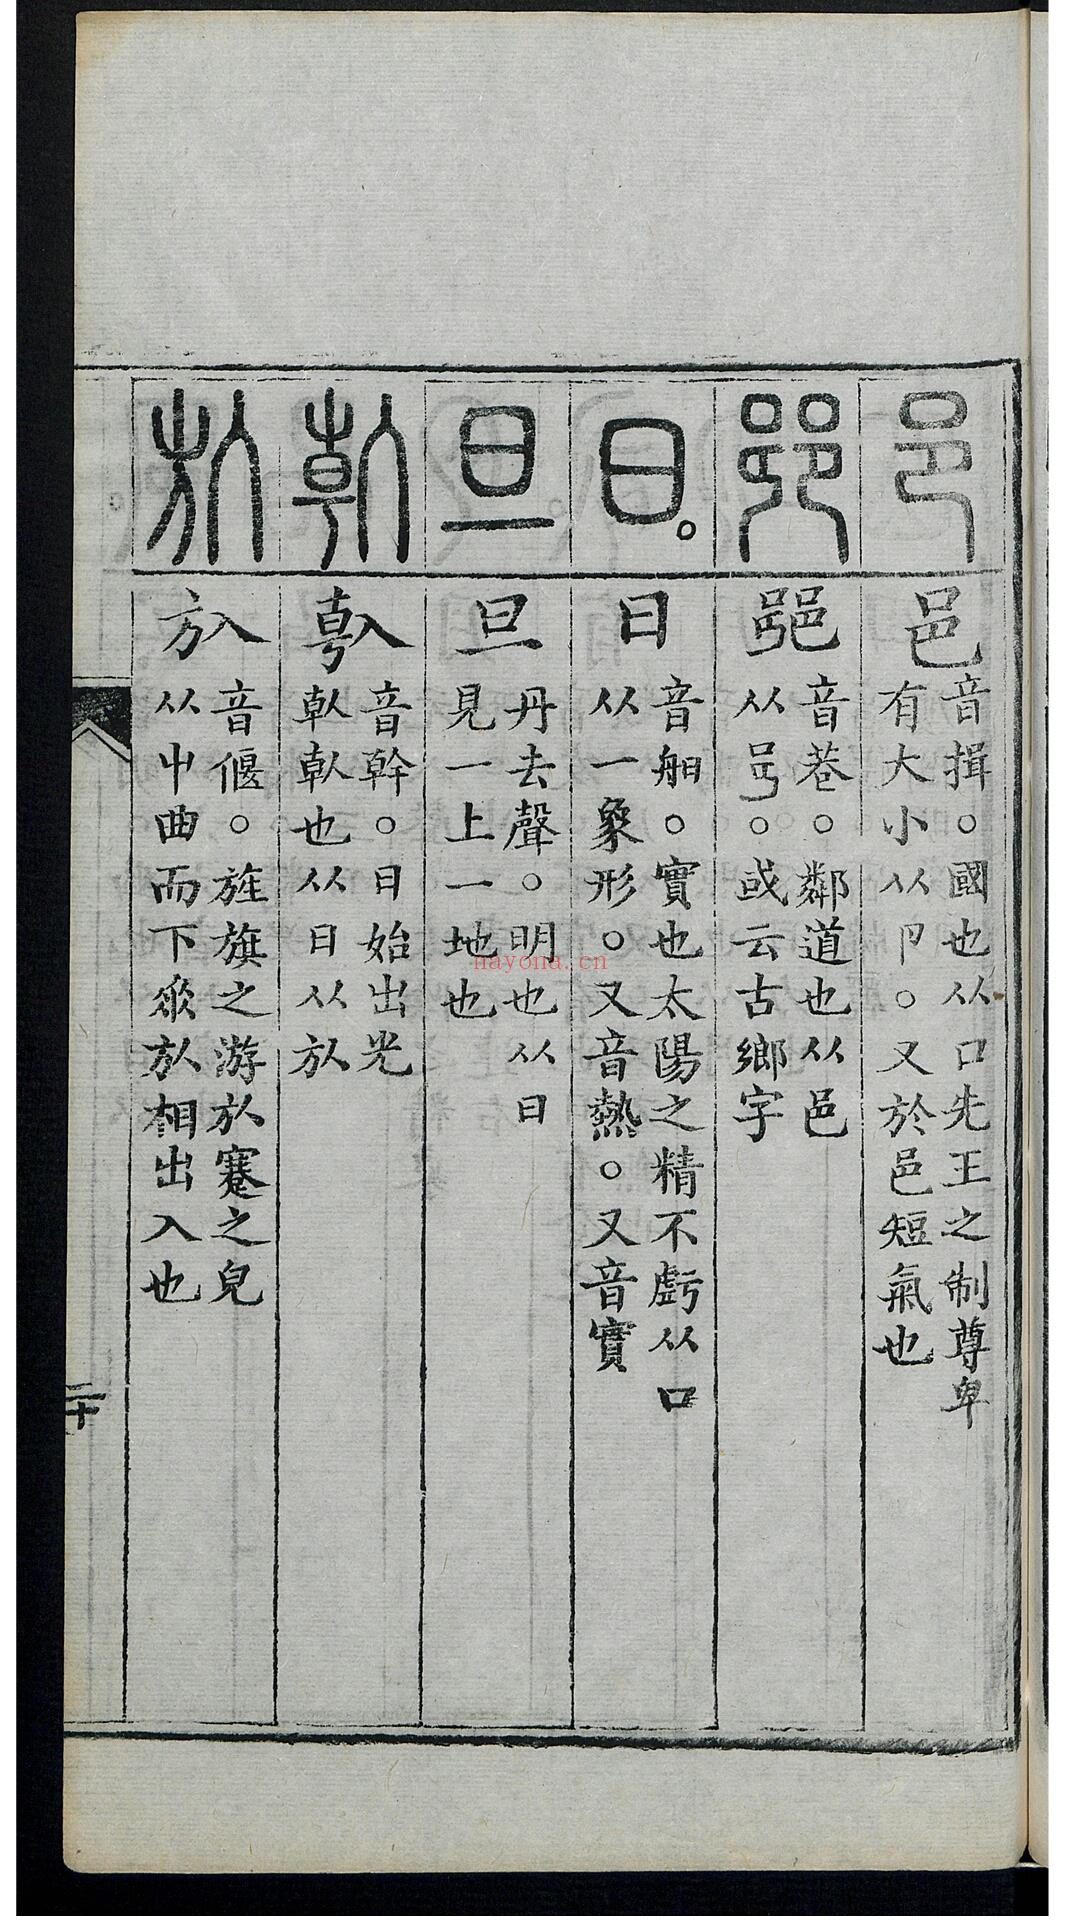 邑
邑
音揖。國也从口先王之制尊卑
有大小从卪。又於邑短氣也
𨛜
𨛜
音巷。鄰道也从邑
从𠨍。或云古鄉字
日
日
音馹。實也太陽之精不虧从口
从一象形。又音熱。又音實
旦
旦
丹去聲。明也从日
見一上一地也
倝
倝
音幹。日始出光
倝倝也从日从㫃
㫃
㫃
音偃。旌旗之游㫃蹇之皃
从屮曲而下㫃相出入也
二十
nayona.cn